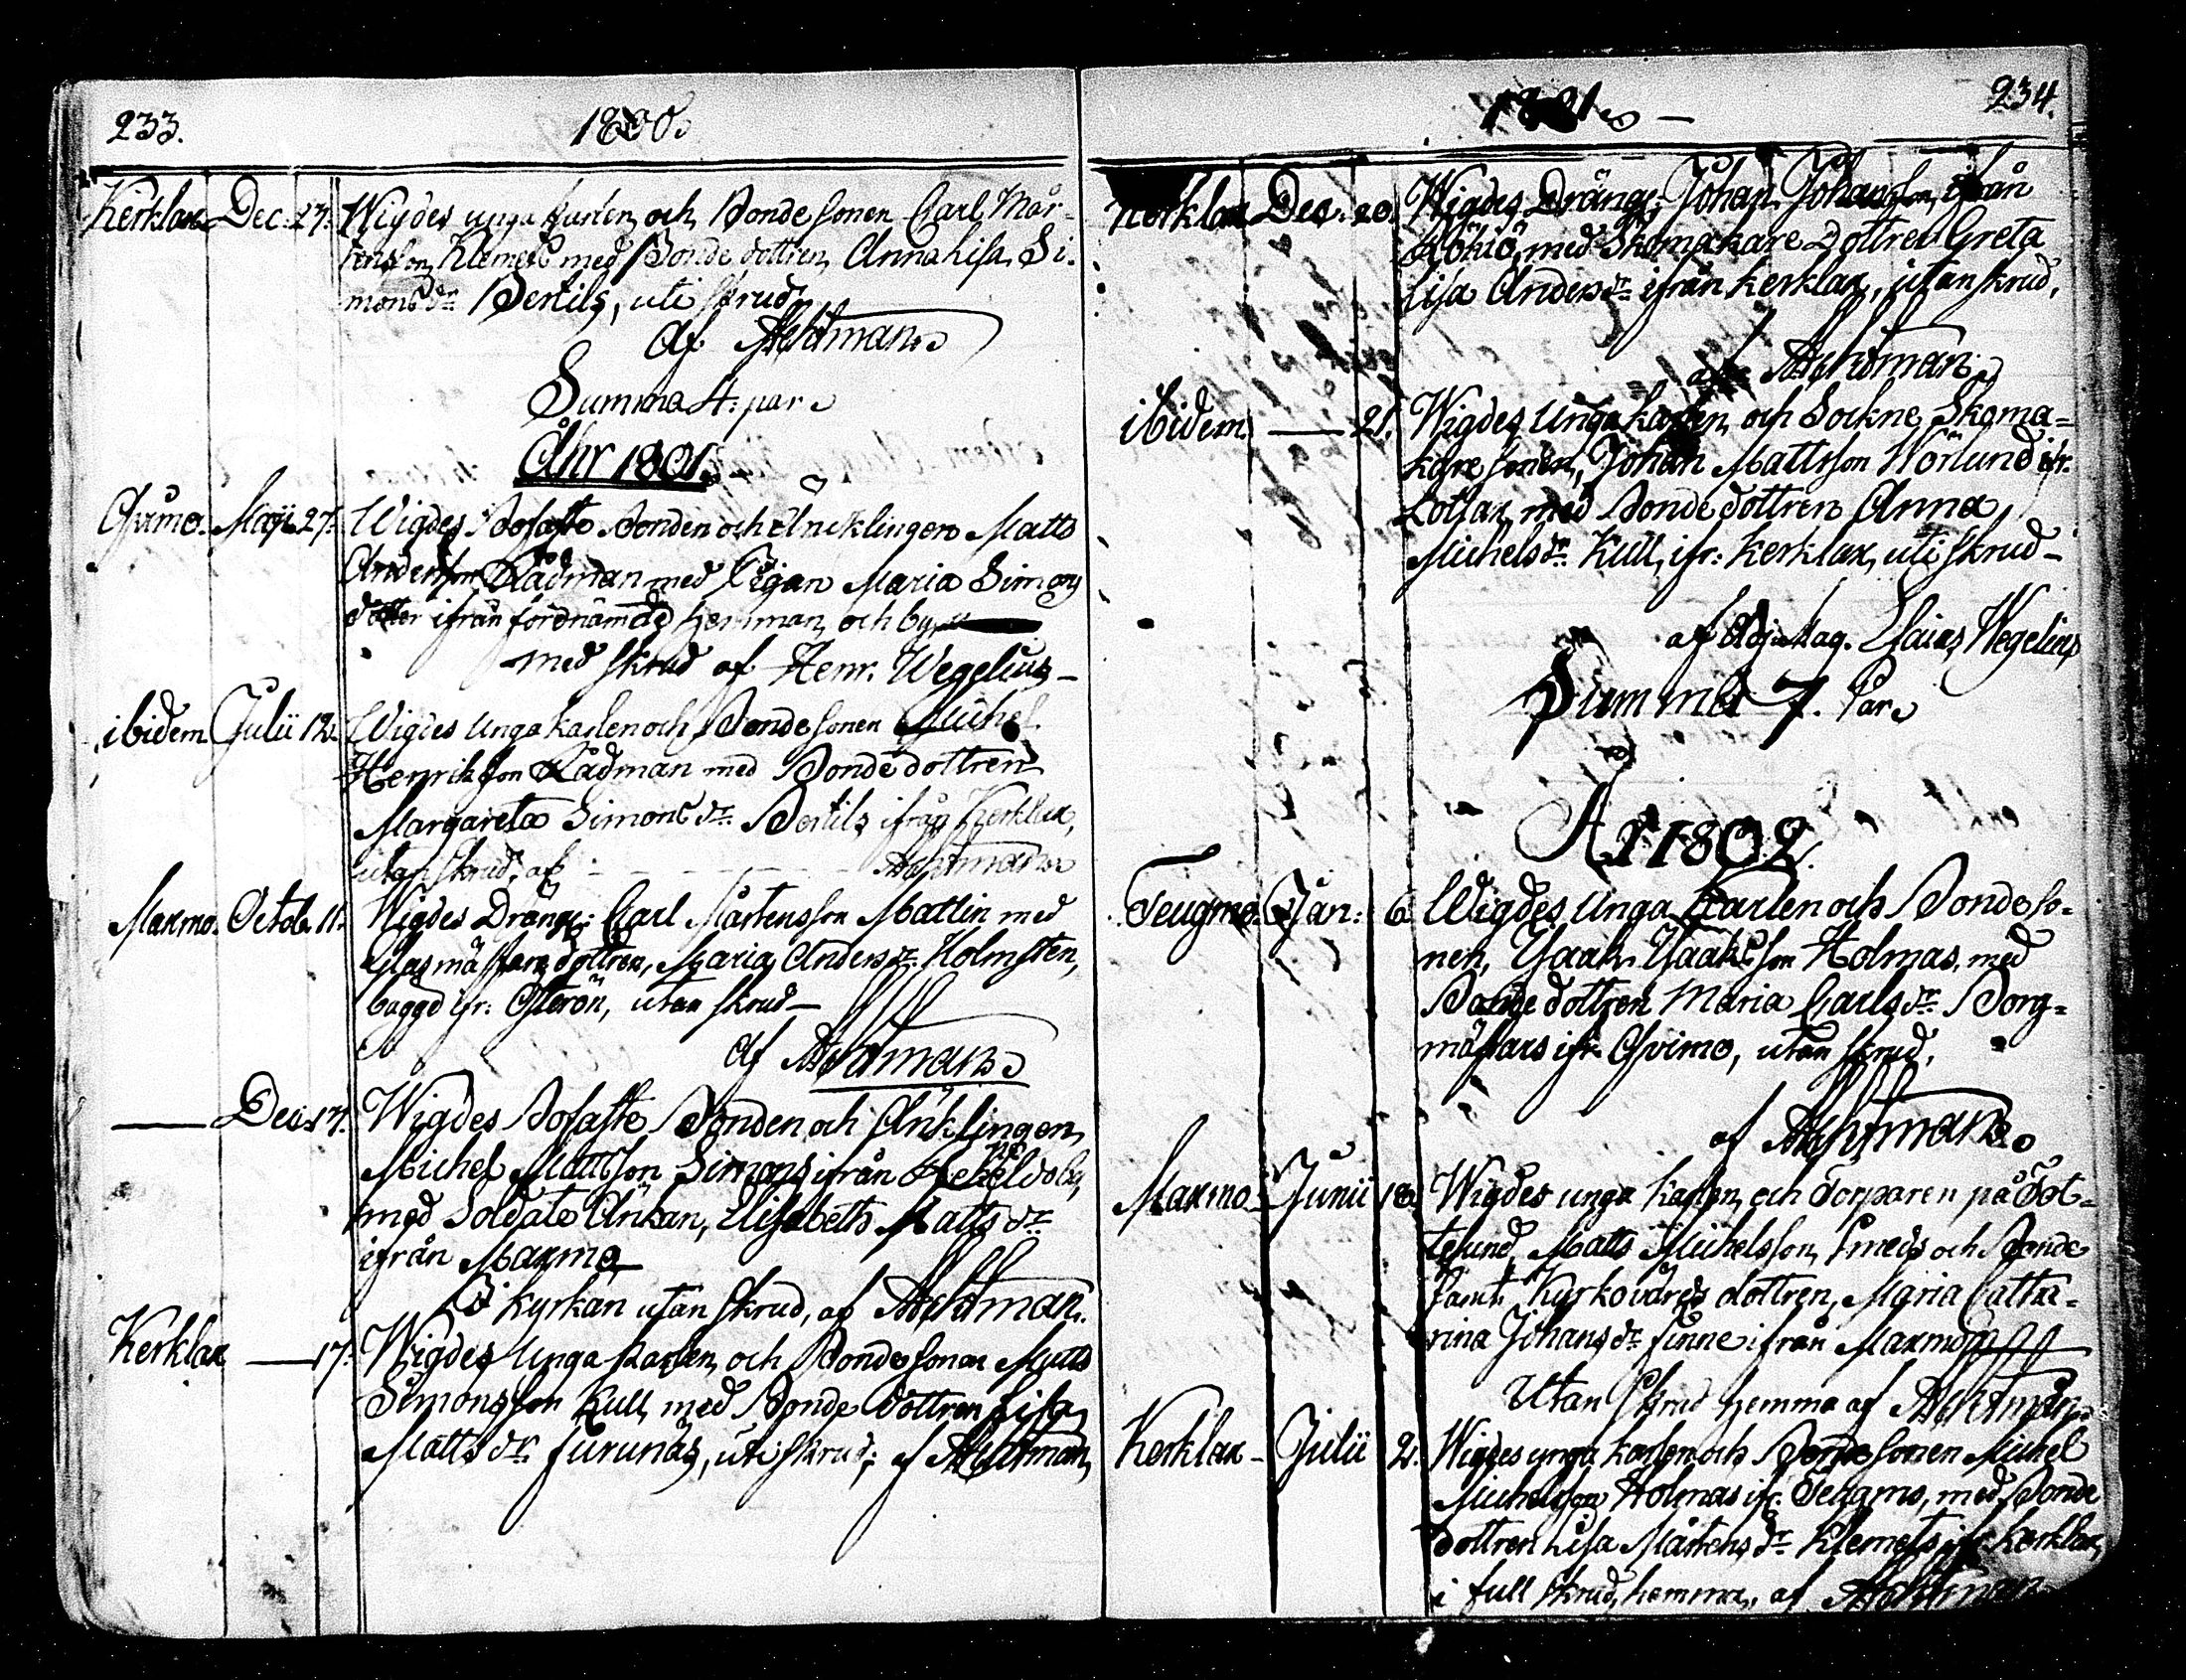 233.
1800.
Kerklax Dec: 27. Wigdes unga karlen och Bonde sonen Carl Mår-
tensson Klemets med Bonde dottren Anna Lisa Si-
mons dr Bertils, uti skrud
af Aschtman.
Summa 4: par.
Åhr 1801.
Qvimo. Maji 27. Wigdes Bofaste Bonden och Enklingen Matts
Andersson Rådman med Pigan Maria Simons
dotter ifrån förenämde Hemman och by,
med skrud af Henr. Wegelius
ibidem. Julii 12. Wigdes unga karlen och Bonde sonen Michel
Henriksson Rådman med Bonde dottren
Margareta Simons dr Bertils ifrån Kerklax,
utan skrud, af Aschtman
Maxmo. Octob. 11. Wigdes Dräng: Carl Mårtensson Mattlin med
Glasmästare dottren, Maria Anders dr Holmsten,
bägge ifr: Österön, utan skrud
af Aschtman.
— Dec: 17. Wigdes Bofaste Bonden och Änklingen
Michel Mattsson Simons ifrån
med Soldate Änkan, Elisabeth Matts dr
ifrån Maxmo
I kyrkan utan skrud, af Aschtman.
Kerklax — 17. Wigdes Unga karlen och Bonde sonen Matts
Simonsson Kull, med Bonde dottren Lisa
Matts dr Furunäs, uti skrud; af Aschtman
1801. —
234.
Kerklax Dec: 20. Wigdes Dräng: Johan Johansson, ifrån
med Skomakare dottren Greta
Lisa Anders dr ifrån Kerklax, utan skrud,
af Aschtman.
ibidem. — 21. Wigdes Unga karlen och Sockne Skoma-
kare sonen, Johan Mattsson Hörlund ifr.
Lotlax, med Bonde dottren Anna
Michels dr Kull, ifr: Kerklax, uti skrud —
af Adj: Mag. Esaias Wegelius
Summa 7. Par.
År 1802.
Teugmo. Jan: 6. Wigdes Unga karlen och Bonde so-
nen, Isaak Isaaksson Holmas, med
Bonde dottren Maria Carls dr Borg-
mästars ifr. Qvimo, utan skrud,
af Aschtman.
Maxmo. Junii 18. Wigdes unga karlen och Torparen på Tot-
tesund, Matts Michelsson Smeds och Bonde
samt Kyrkovärds dottren, Maria Catha-
rina Johans dr Finne ifrån Maxmo
Utan Skrud hemma af Aschtman.
Kerklax - Julii 2. Wigdes unga karlen och Bonde sonen Michel
Michelsson Holmas ifr. Teugmo, med Bonde
dottren Lisa Mårtens dr Klemets ifr. Kerklax,
i full skrud, hemma, af Aschtman